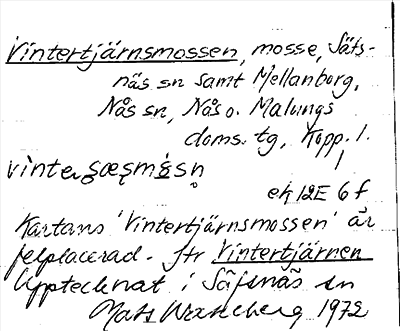 Vintertjärnsmossen, mosse, Säfs-
näs sn samt Mellanborg,
Nås sn, Nås o. Malungs
doms. tg, Kopp. l.
ek 12E 6f
Kartans 'Vintertjärnsmossen' är
felplacerad. Jfr Vintertjärnen
Upptecknat i Säfsnäs sn
Mats Wahlberg 1972